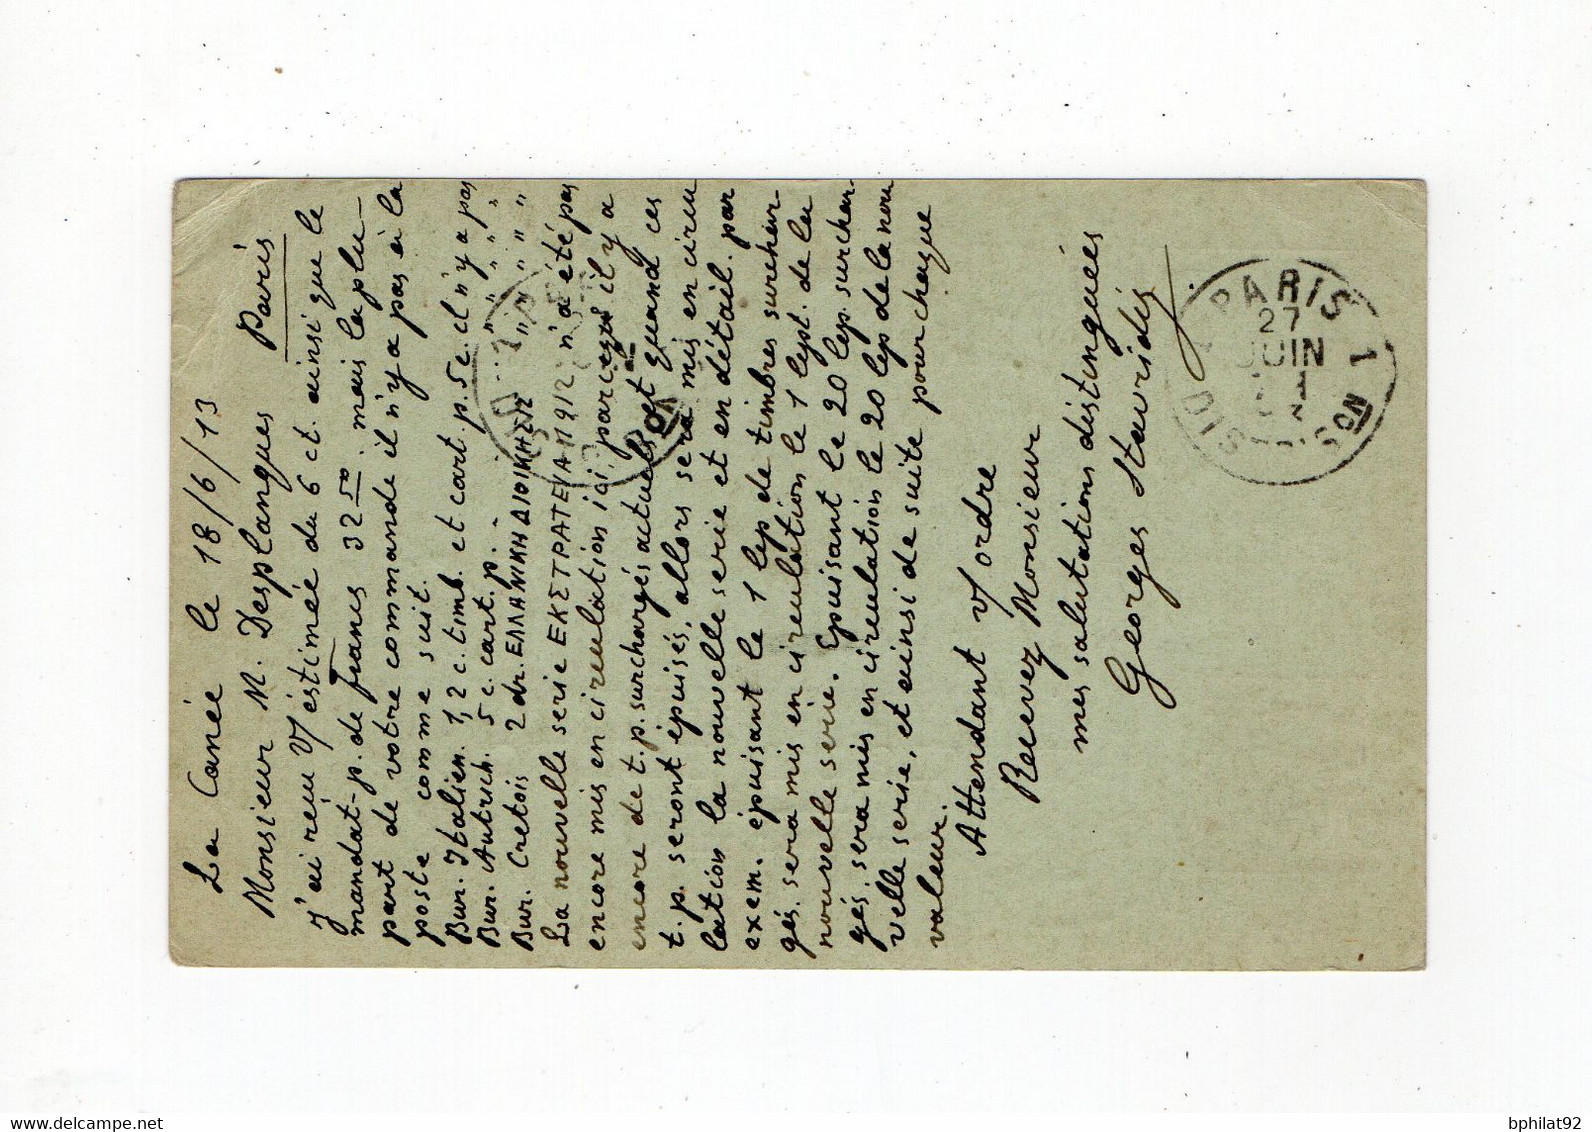 La Canée le 18/6/13
Monsieur N. Desplanques Paris
j'ai reçu V/ estimée du 6 ct. ainsi que le
mandat-p. de francs 32 50. mais la plu-
part de votre commande il n'y a pas à la
poste comme suit.
Bur. Italien. 1, 2 c. timb. et cart p. 5 c. il n'y a pas
Bur. Autrich. 5 c. cart. p. - " " " pas
Bur. Cretois 2 dr. ΕΛΛΑΝΙΚΗ ΔΙΟΙΚΗΣΙΣ " " " " "
La nouvelle serie ΕΚΣΤΡΑΤΕΙΑ 1912 n'a été pas
encore mis en circulation ici parceque il y a
encore de t.p. surchargés actuels et quand ces
t.p. seront épuisés, allors sera mis en circu
lation la nouvelle serie et en détail. par
exem. épuisant le 1 lep de timbres surchar-
gés. sera mis en circulation le 1 lept. de la
nouvelle serie. Epuisant le 20 lep. surchar-
gés, sera mis en circulation le 20 lep de la nou
velle serie, et ainsi de suite pour chaque
valeur.
Attendant V/ ordre
Recevez Monsieur
mes salutations distinguées
Georges Stavridis
PARIS 1
27
JUIN
bphilat92